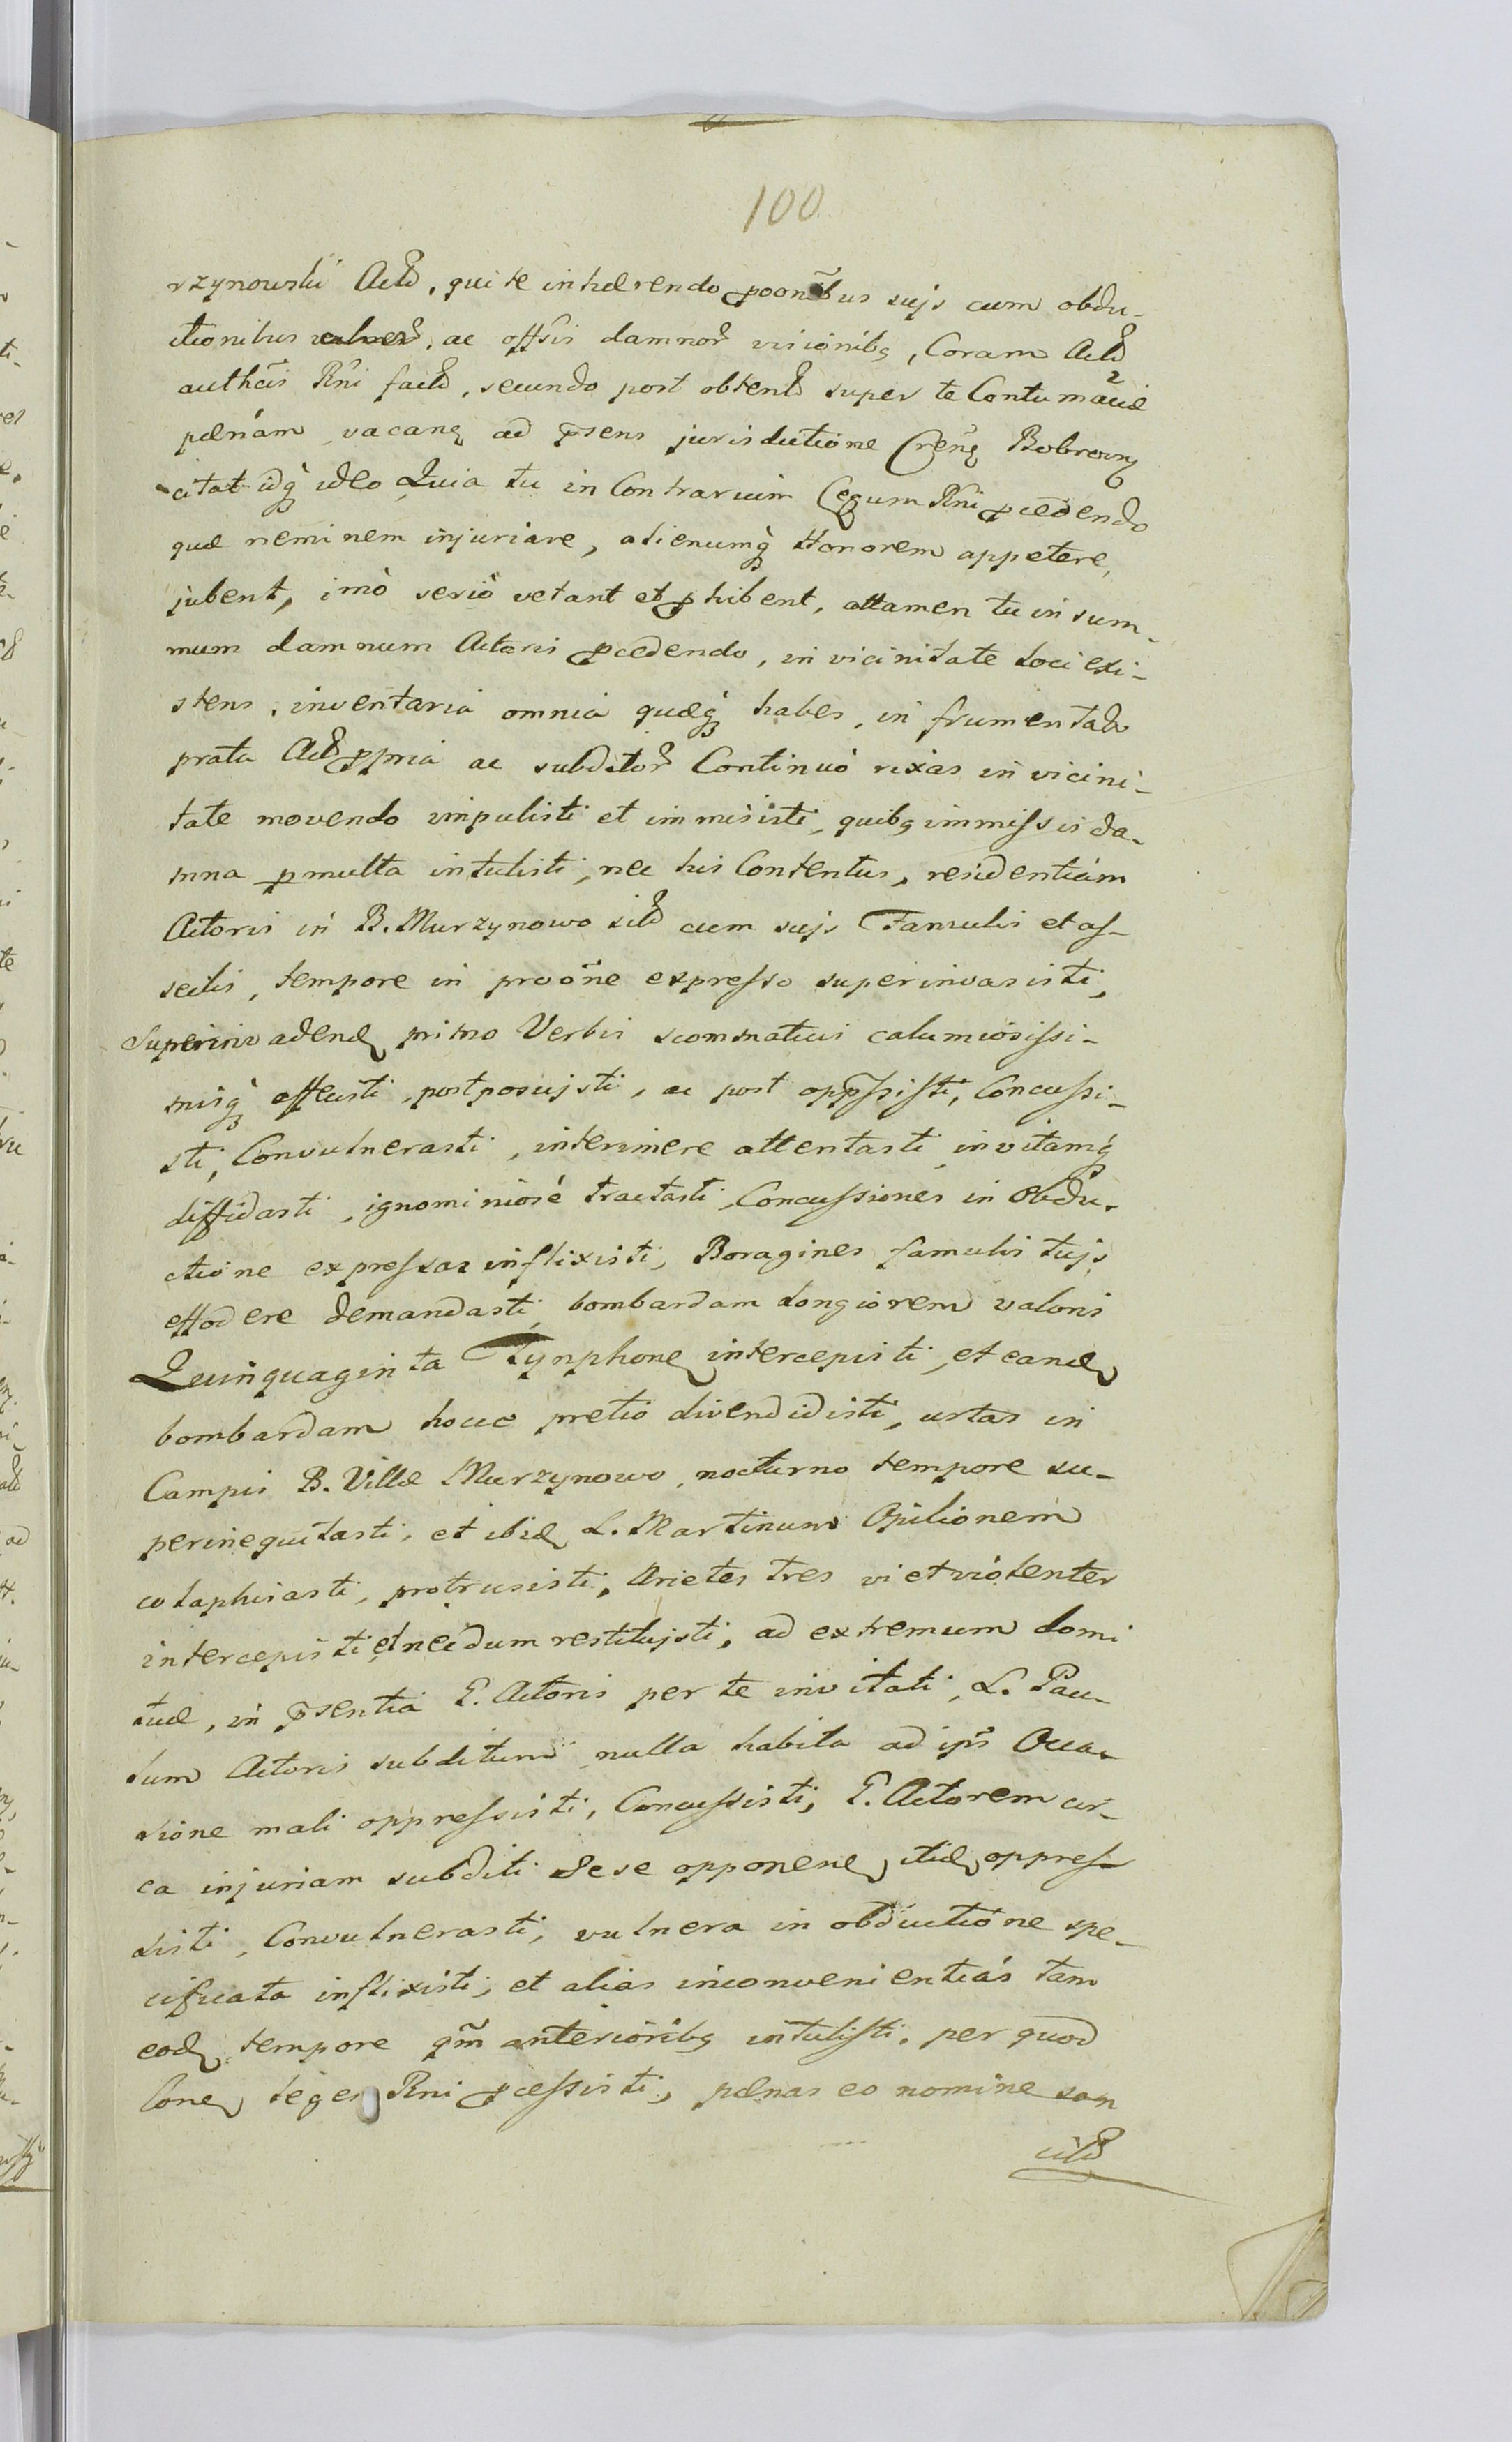 100
rzynowski Actō, qui te inhærendo ꝓonibus sujs cum obdu-
ctionibus vulner, ac offsis damnor visionibq, Coram Actō
authcis Rni factō, secundo post obtentō super te Contumaciæ
pænam, vacanq ad p̄sens jurisdictione Crenq Bobrowq
citat idq ideo Quia tu in Contrarium Legum Rni ꝓcedendo
quæ neminem injuriare, alienumq Honorem appetere,
jubent, imò seriò vetant et ꝓhibent, attamen tu in sum-
mum damnum Actoris ꝓcedendo, in vicinitate loci exi-
stens, inventaria omnia quæq habes, in frumenta &
prata Actō ꝓpria ac subditor Continuò rixas in vicini-
tate movendo impulisti et immisisti, quibq immissis da-
mna ꝑmulta intulisti, nec his Contentus, residentiam
Actoris in B. Murzynowo sitō cum sujs Famulis et as-
seclis, tempore in prooñe expresso superinvasisti,
Superinvadendq primo Verbis scommaticis calumiosissi-
misq affecisti, postposujsti, ac post opp̄ssisti, Concussi-
sti, Convulnerasti, interimere attentasti, in vitamq
diffidasti, ignominiosè tractasti, Concussiones in Obdu-
ctione expressas inflixisti, Boragines famulis tujs
effodere demandasti, bombardam longiorem valoris
Quinquaginta Tynphonq intercepisti, et eandq
bombardam hocce pretio divendidisti, ustas in
Campis B. Villæ Murzynowo, nocturno tempore su-
perinequitasti, et ibidq L. Martinum Opilionem
colaphisasti, protrusisti, Arietes tres vi et violenter
intercepisti et necdum restitujsti, ad extremum domi
tuæ, in p̄sentia G. Actoris per te invitati, L. Pau-
lum Actoris subditum nulla habita ad ips Occa-
sione mali oppressisti, Concussisti, G. Actorem cir-
ca injuriam subditi sese opponenq, itidq oppres-
sisti, Convulnerasti, vulnera in obductione spe-
cificata inflixisti, et alias inconvenientias tam
eodq tempore qm̃ anterioribq intulisti, per quod
Conq leges Rni ꝓcessisti, pænas eo nomine san
citō